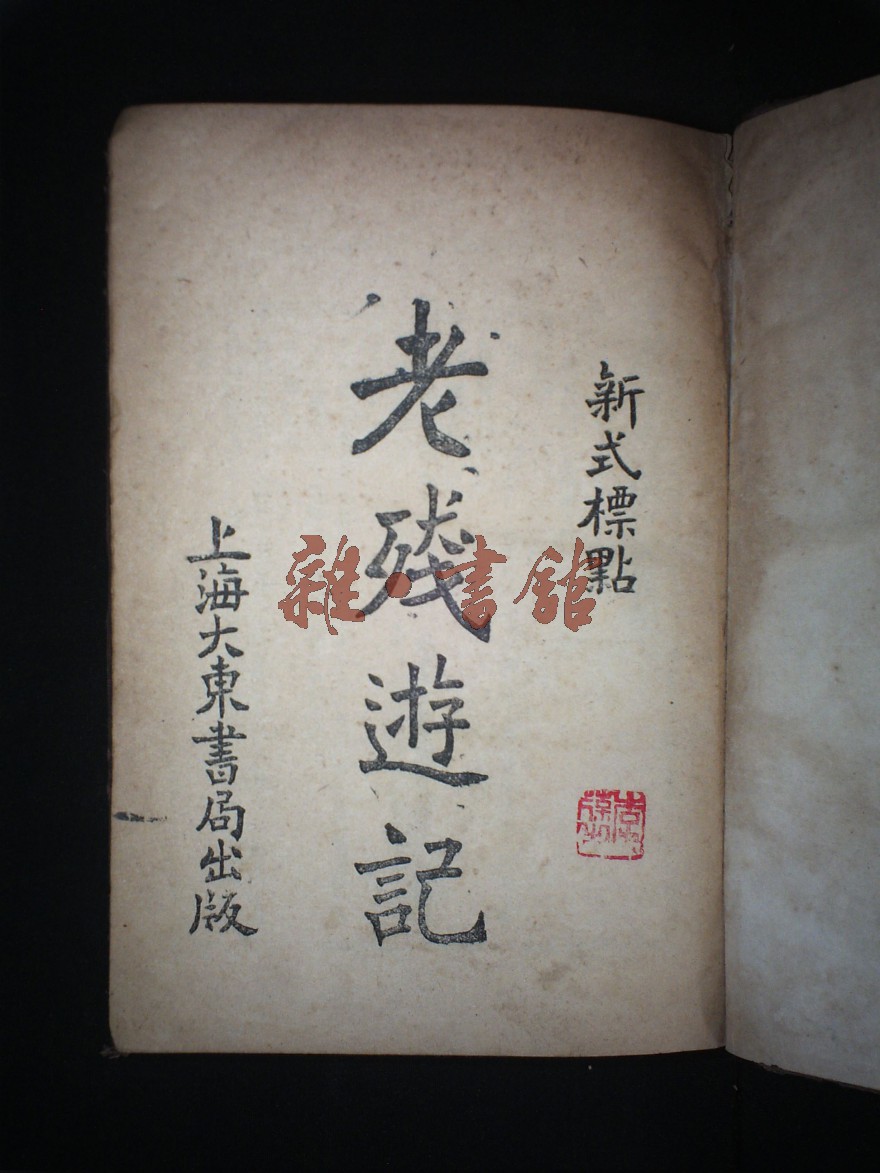 新式標點
老殘遊記
上海大東書局出版
雜·書館